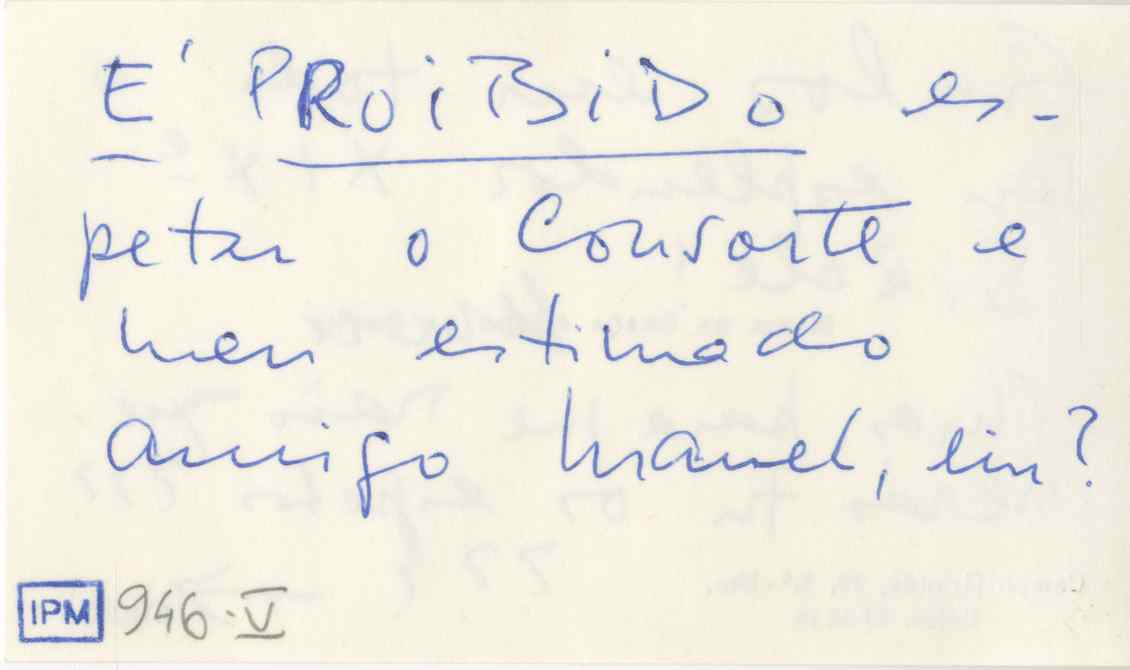 E' PROiBiDO es-
petar o Consorte e
meu estimado
amigo Manel, ein?
IPM 946·V